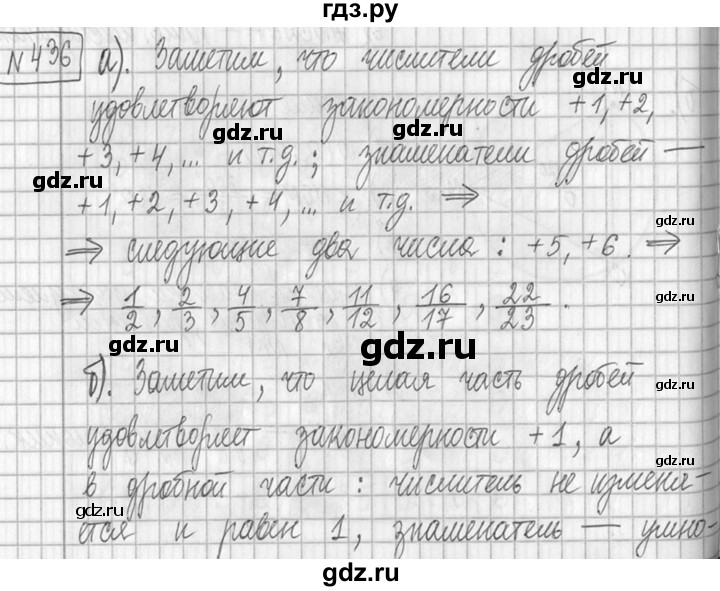 гдз.ру
№436 а). Заметим, что числители дробей
удовлетворяют закономерности +1, +2,
+3, +4, ... и т.д.; знаменатели дробей —
+1, +2, +3, +4, ... и т.д. ⇒
⇒ следующие два числа: +5, +6. ⇒
⇒ 1/2, 2/3, 4/5, 7/8, 11/12, 16/17, 22/23.
б). Заметим, что целая часть дробей
удовлетворяет закономерности +1, а
в дробной части: числитель не изменя-
ется и равен 1, знаменатель — умно-
gdz.ru
gdz.ru
gdz.ru
gdz.ru
gdz.ru
gdz.ru
gdz.ru
gdz.ru
gdz.ru
gdz.ru
gdz.ru
gdz.ru
gdz.ru
gdz.ru